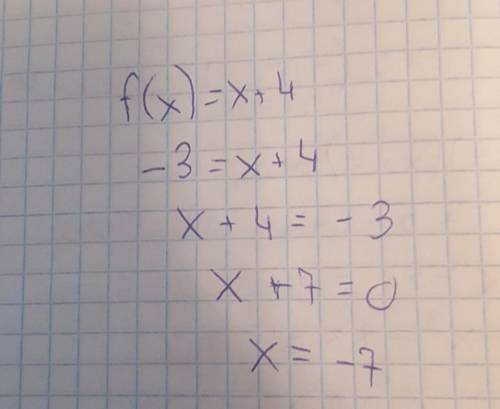 f(x)=x+4
-3=x+4
x+4=-3
x+7=0
x=-7